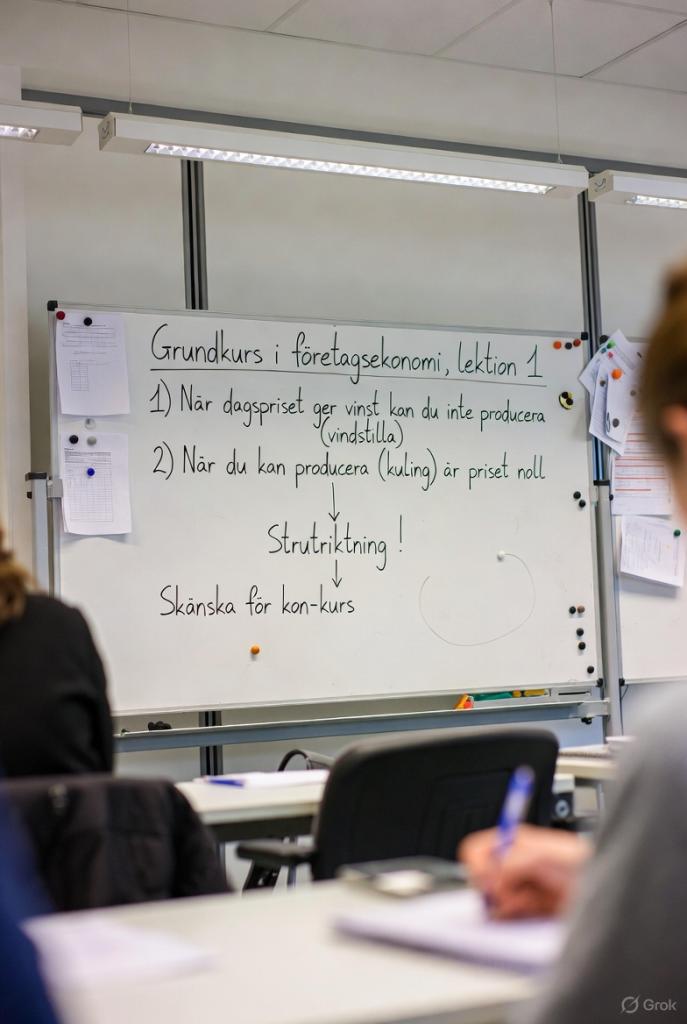 Grundkurs i företagsekonomi, lektion 1
1) När dagspriset ger vinst kan du inte producera
(vindstilla)
2) När du kan producera (kuling) är priset noll
↓
Strutriktning !
↓
Skänska för kon-kurs
Grok